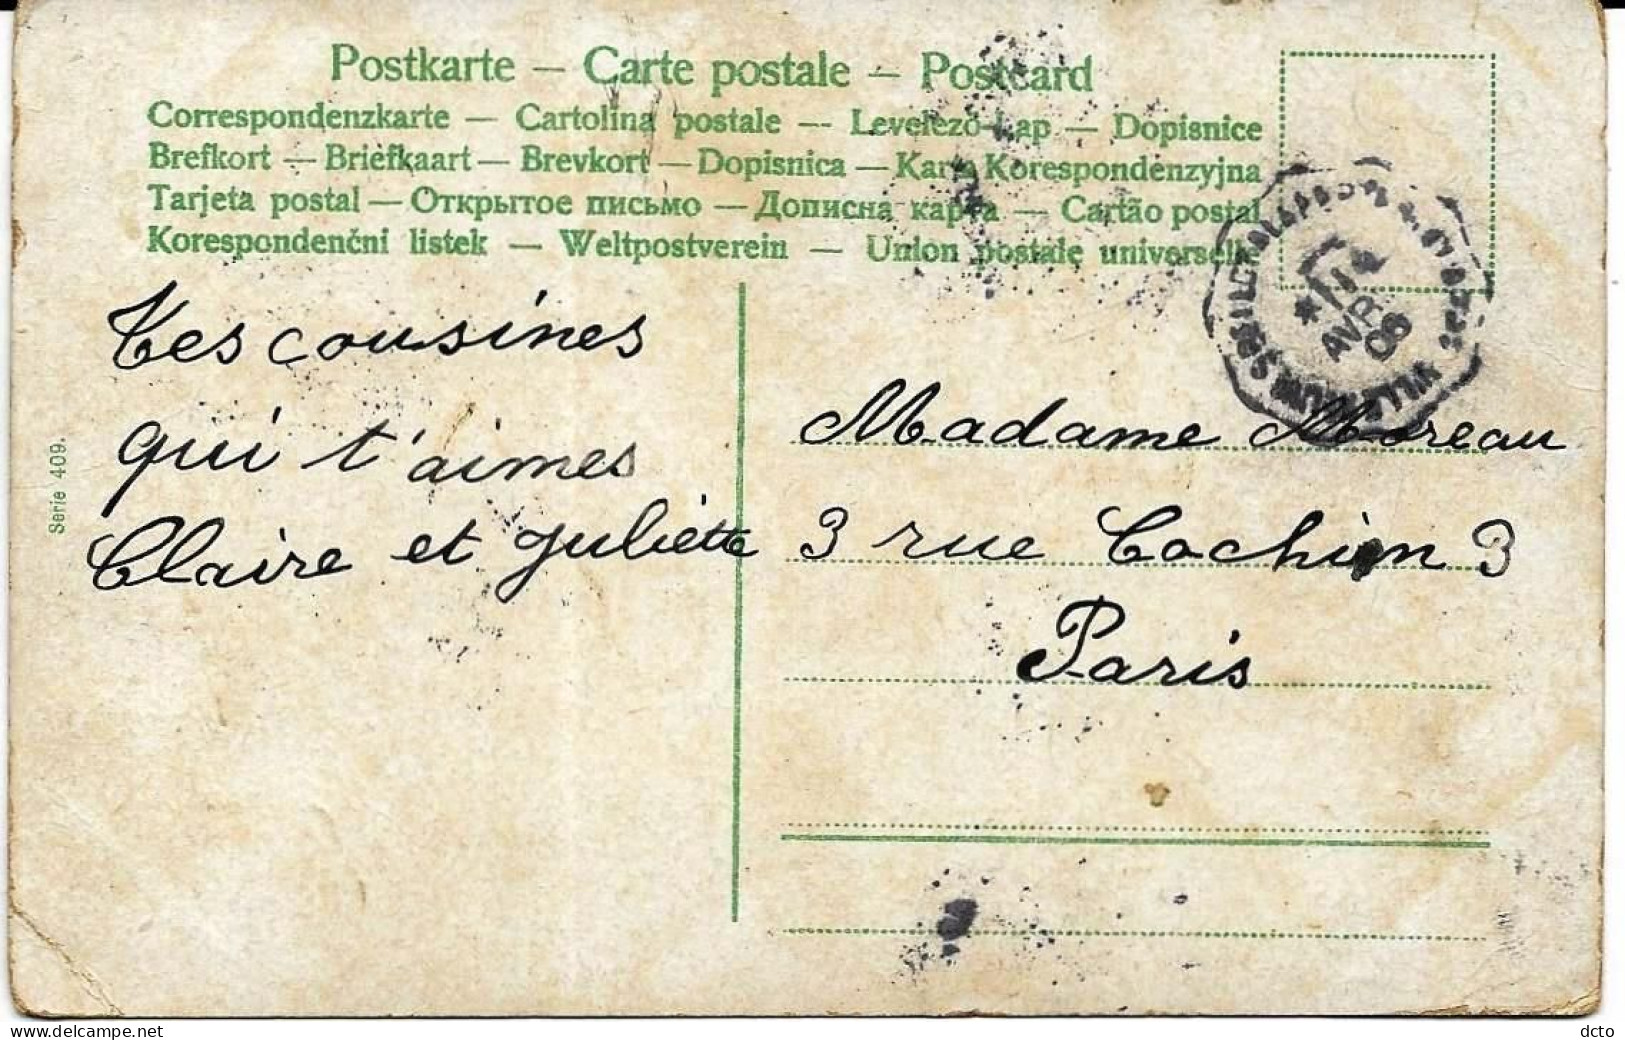 Postkarte — Carte postale — Postcard
Correspondenzkarte — Cartolina postale — Levelező-Lap — Dopisnice
Brefkort — Briefkaart — Brevkort — Dopisnica — Karta Korespondenzyjna
Tarjeta postal — Открытое письмо — Дописна карта — Cartão postal
Korespondenčni listek — Weltpostverein — Union postale universelle
Tes cousines
qui t'aimes
Claire et Juliette
Serie 409.
AVR
08
Madame Moreau
3 rue Cochin 3
Paris
dcto